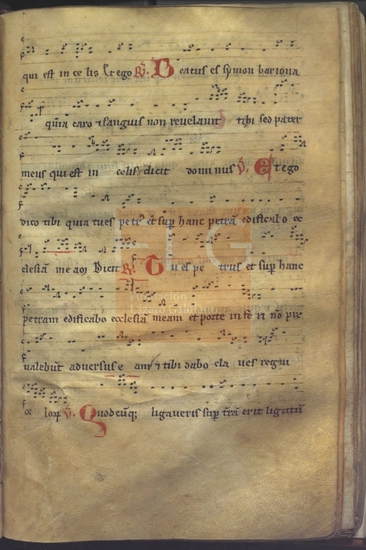 qui est in ce lis Et ego R. Beatus es symon bariona
quia caro & sanguis non revelavit tibi sed pater
meus qui est in celis dicit dominus V. Et ego
dico tibi quia tu es petrus et sup hanc petrã edificabo ec
clesiã meam Dicit R. Tu es pe trus et sup hanc
petram edificabo ecclesiã meam et porte inferi non pre
valebunt adversus eam & tibi dabo claves regni
ce lorum V. Quodcuq; ligaveris sup trã erit ligatũ